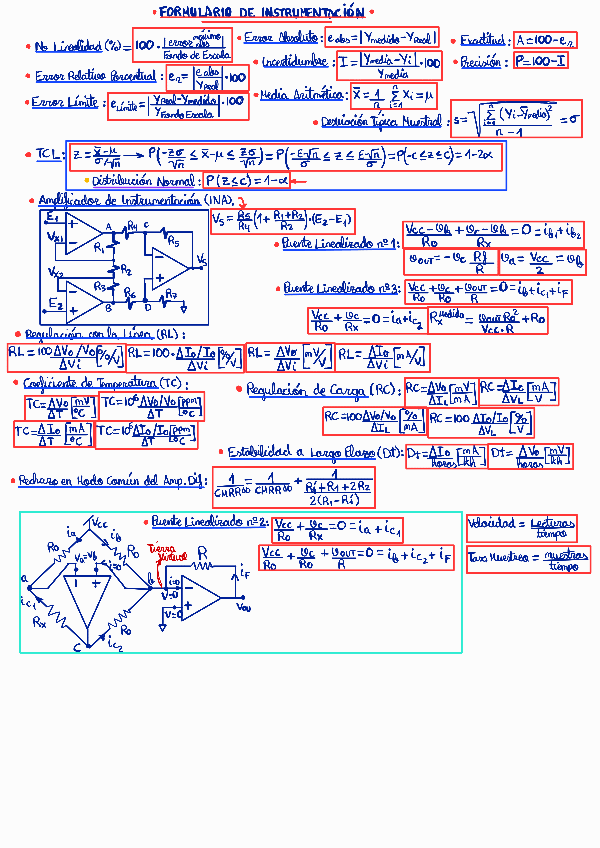 • FORMULARIO DE INSTRUMENTACIÓN •
• No Linealidad (%) = 100 · |error abs máximo| / Fondo de Escala
• Error Absoluto: e_abs = |Y_medido - Y_Real|
• Exactitud: A = 100 - e_r
• Error Relativo Porcentual: e_r = |e_abs / Y_Real| · 100
• Incertidumbre: I = |Y_media - Y_i| / Y_media · 100
• Precisión: P = 100 - I
• Error Límite: e_Límite = |Y_Real - Y_medido / Y_Fondo Escala| · 100
• Media Aritmética: x̄ = 1/n Σ_{i=1}^{n} x_i = μ
• Desviación Típica Muestral: s = √(Σ_{i=1}^{n} (Y_i - Y_medio)² / n-1) = σ
• TCL: z = x̄-μ / σ/√n → P(-zσ/√n ≤ x̄-μ ≤ zσ/√n) = P(-ε√n/σ ≤ z ≤ ε√n/σ) = P(-c ≤ z ≤ c) = 1-2α
• Distribución Normal: P(z ≤ c) = 1-α
• Amplificador de Instrumentación (INA)
V_S = R5/R4 (1 + R1+R2/R2) · (E2-E1)
E1 Vx1 A R4 C R5 R1 R2 Vs Vx2 E2 B R6 D R7
• Puente Linealizado nº1: Vcc-Vb/Ro + Vc-Vb/Rx = 0 = ib1 + ib2
Vout = -Vc Rf/R Va = Vcc/2 = Vb
• Puente Linealizado nº3: Vcc/Ro + Vc/Ro + Vout/Ro = 0 = ib + ic1 + iF
Vcc/Ro + Vc/Rx = 0 = ia + ic2 Rx^medido = Vout Ro² / Vcc·R + Ro
• Regulación con la Línea (RL):
RL = 100 ΔVo/Vo / ΔVi [%/V] RL = 100 · ΔIo/Io / ΔVi [%/V] RL = ΔVo/ΔVi [mV/V] RL = ΔIo/ΔVi [mA/V]
• Coeficiente de Temperatura (TC):
TC = ΔVo/ΔT [mV/°C] TC = 10⁶ ΔVo/Vo / ΔT [ppm/°C]
TC = ΔIo/ΔT [mA/°C] TC = 10⁶ ΔIo/Io / ΔT [ppm/°C]
• Regulación de Carga (RC): RC = ΔVo/ΔIL [mV/mA] RC = ΔIo/ΔVL [mA/V]
RC = 100 ΔVo/Vo / ΔIL [%/mA] RC = 100 ΔIo/Io / ΔVL [%/V]
• Estabilidad a Largo Plazo (Dt): Dt = ΔIo/horas [mA/kh] Dt = ΔVo/horas [mV/kh]
• Rechazo en Modo Común del Amp. Dif: 1/CMRR = 1/CMRR + 1 / (R1'+R1+2R2 / 2(R1-R1'))
• Puente Linealizado nº2: Vcc/Ro + Vc/Rx = 0 = ia + ic1
Vcc/Ro + Vc/Ro + Vout/R = 0 = ib + ic2 + iF
Velocidad = Lecturas/tiempo
Tasa Muestreo = muestras/tiempo
Vcc ia ib Ro Ro Va=Vb i=0 a b
Tierra Virtual
R iF i=0 V=0 V=0 Vou
ic1 Rx Ro ic2 C